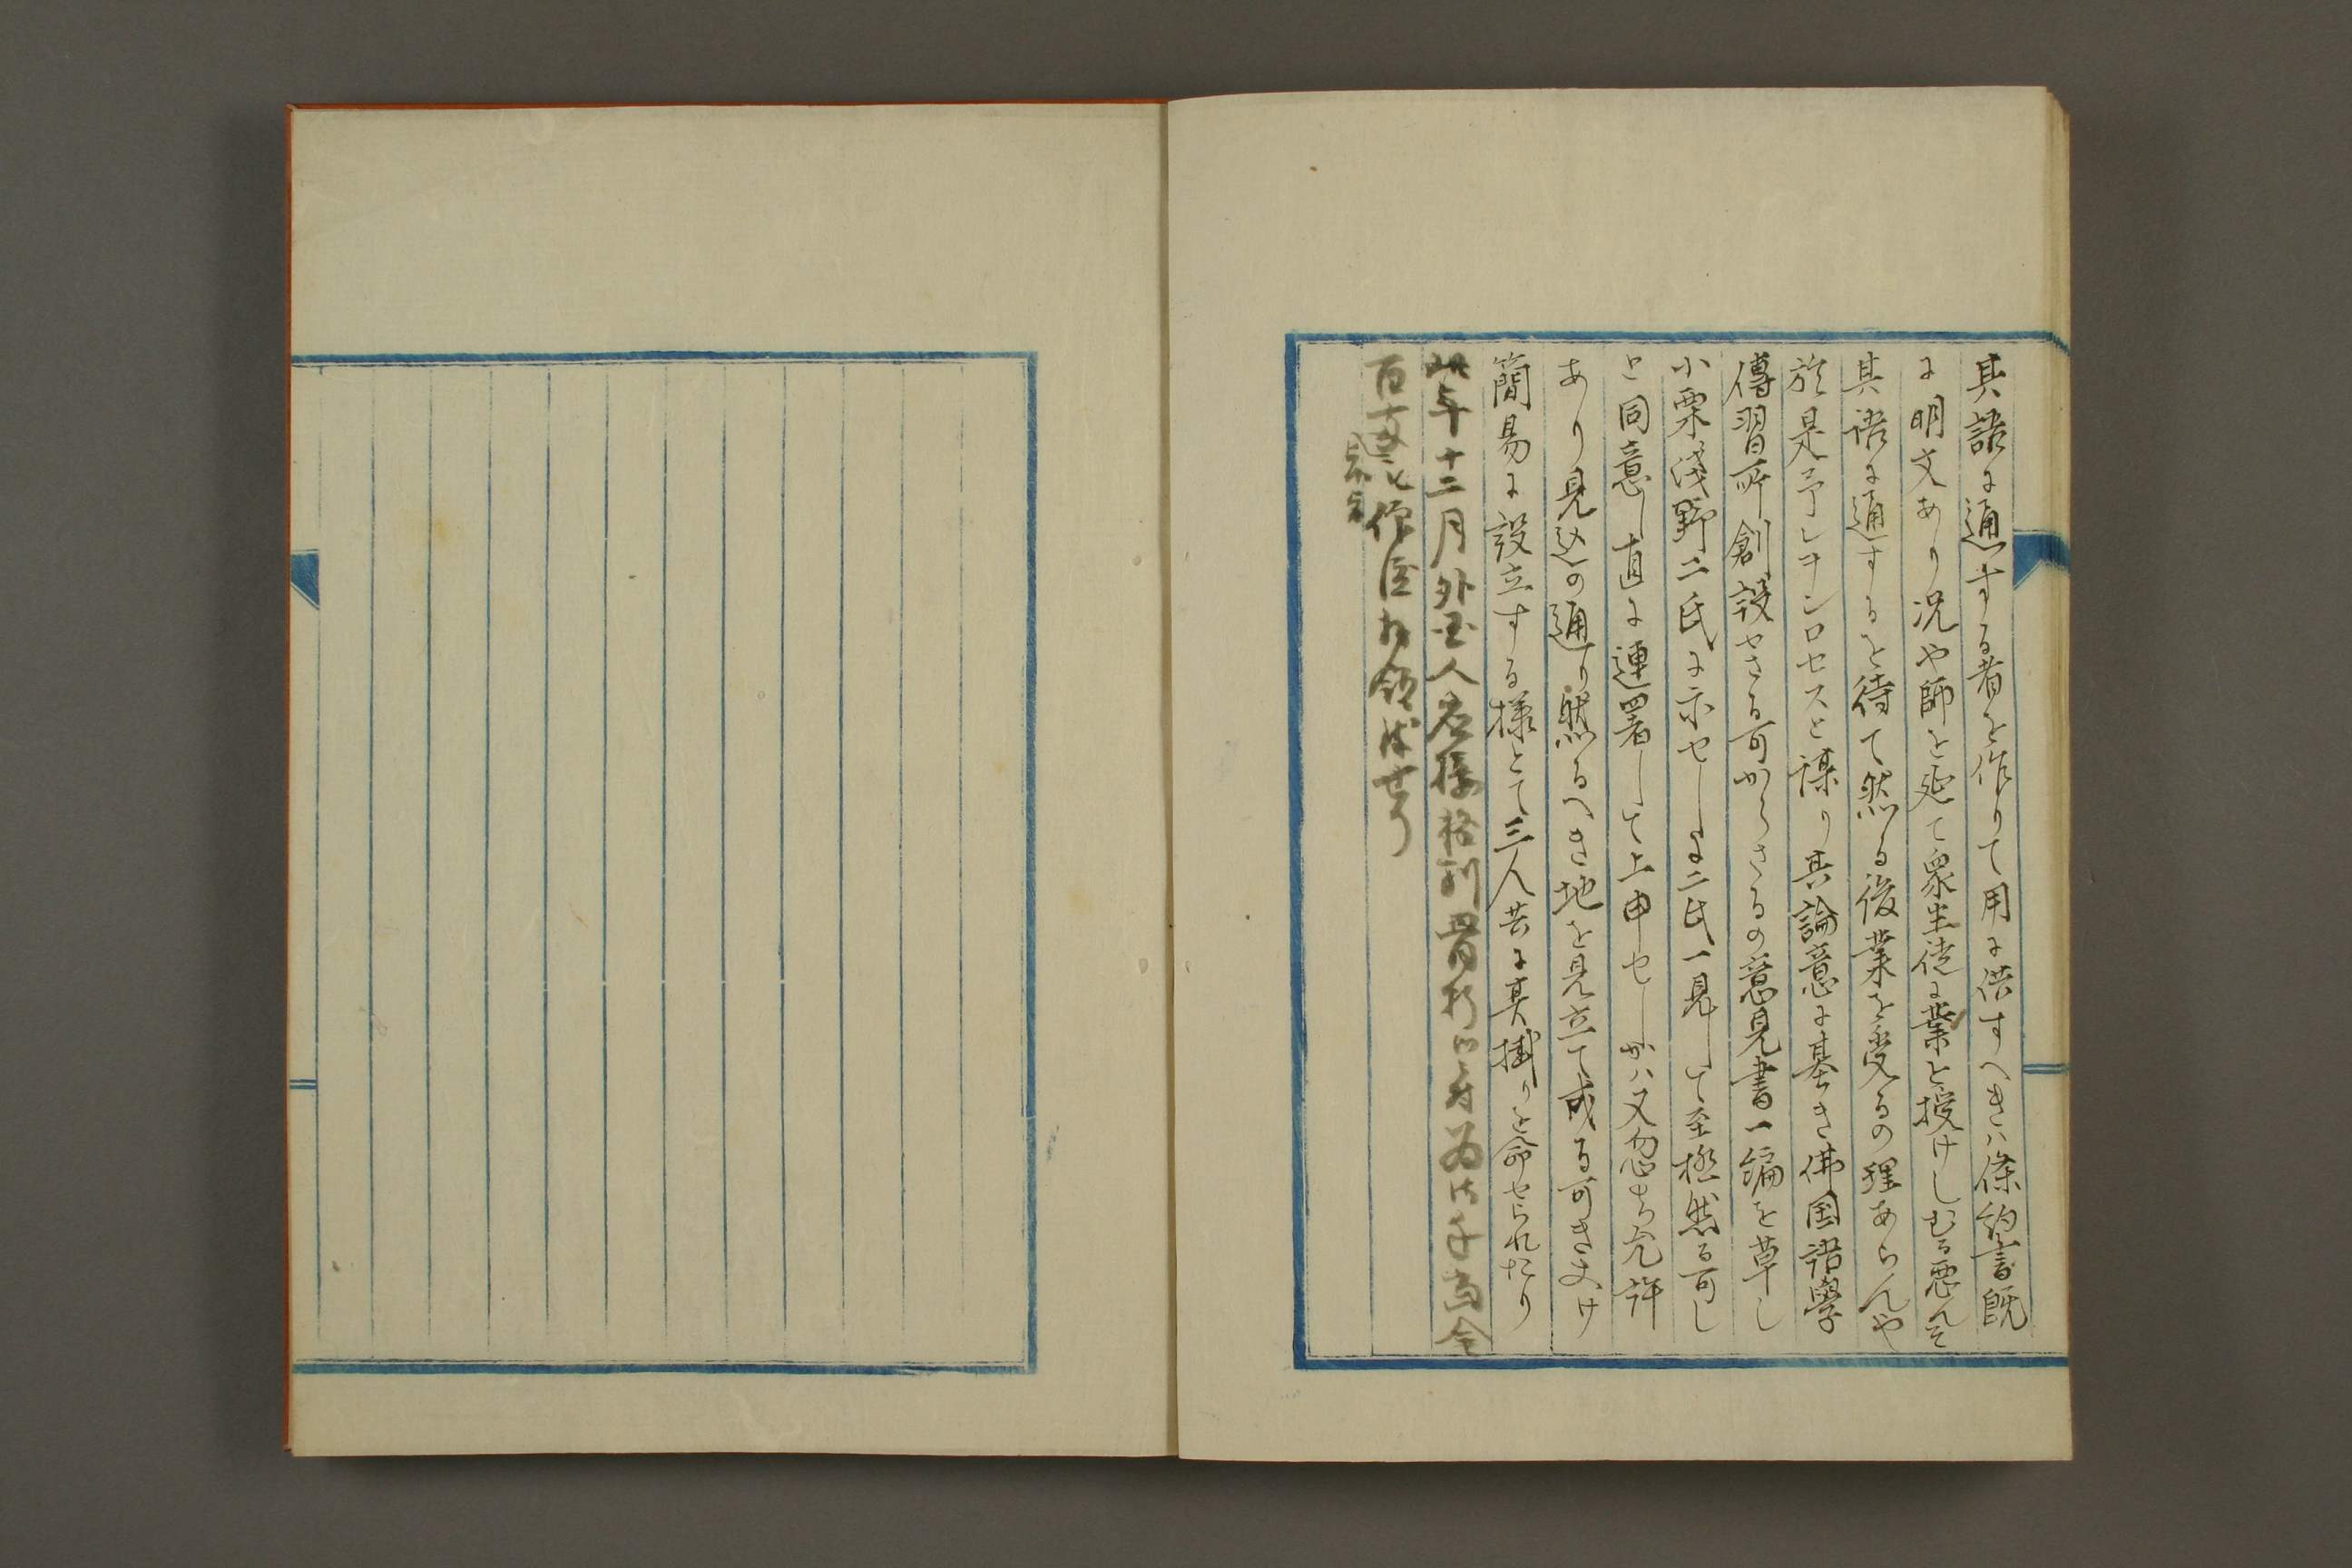 其語に通する者を作りて用に供すへきハ條約書既
に明文あり況や師を延て衆生徒に業を授けしむる悪んそ
其語に通するを待て然る後業を受るの理あらんや
於是予レヲンロセスと謀り其論意に基き佛国語學
傳習所創設せさる可からさるの意見書一編を草し
小栗浅野二氏に示せしに二氏一見して至極然る可し
と同意し直に連署して上申せしかハ又忽ち允許
あり見込の通り然るへき地を見立て成る可き丈け
簡易に設立する様とて三人共に其掛りを命せられたり
此年十二月外国人応接格別骨折